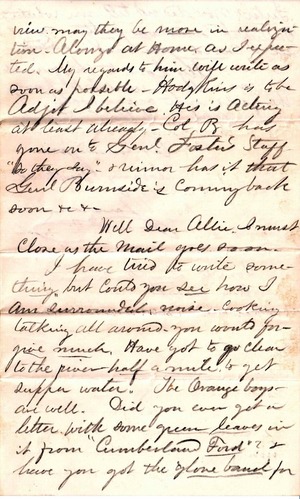 view may they be more in realiza-
tion - Alonzo at Home, as I expec-
ted. My regards to him. will write as
soon as possible - Hodgkins is to be
Adjt I believe. He is Acting
at least already - Col B has
gone on to Genl. Foster's Staff
"so they say" & rumor has it that
Genl Burnside's coming back
soon & & -
Well Dear Allie, I must
Close as the Mail goes soon.
I have tried to write some-
thing, but could you see how I
Am surrounded, noise - cooking
talking all around - you would for-
give much, Have got to go clear
to the river half a mile, to get
supper water. The Orange boys -
are well. Did you ever get a
letter, with some green leaves in
it from "Cumberland Ford"? &
have you got the band for